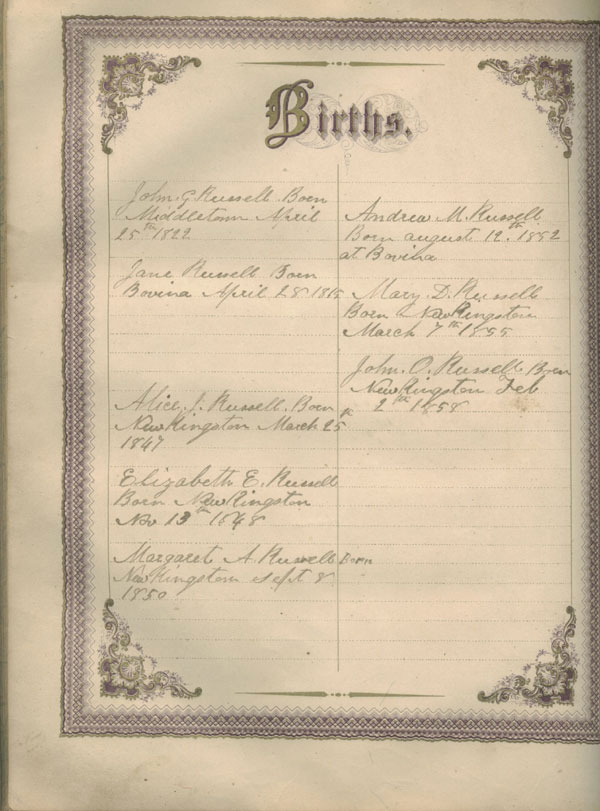 Births.
John. G. Russell. Born
Middletown April
25th 1822
Jane Russell Born
Bovina April 28 1815
Alice. J. Russell. Born
New Kingston March 25th
1847
Elizabeth E. Russell
Born New Kingston
Nov 13th 1848
Margaret A. Russell Born
New Kingston Sept 8
1850
Andrew M. Russell
Born august 12th. 1852
at Bovina
Mary. D. Russell
Born New Kingston
March 7th 1855
John. O. Russell Born
New Kingston Feb
2th 1858